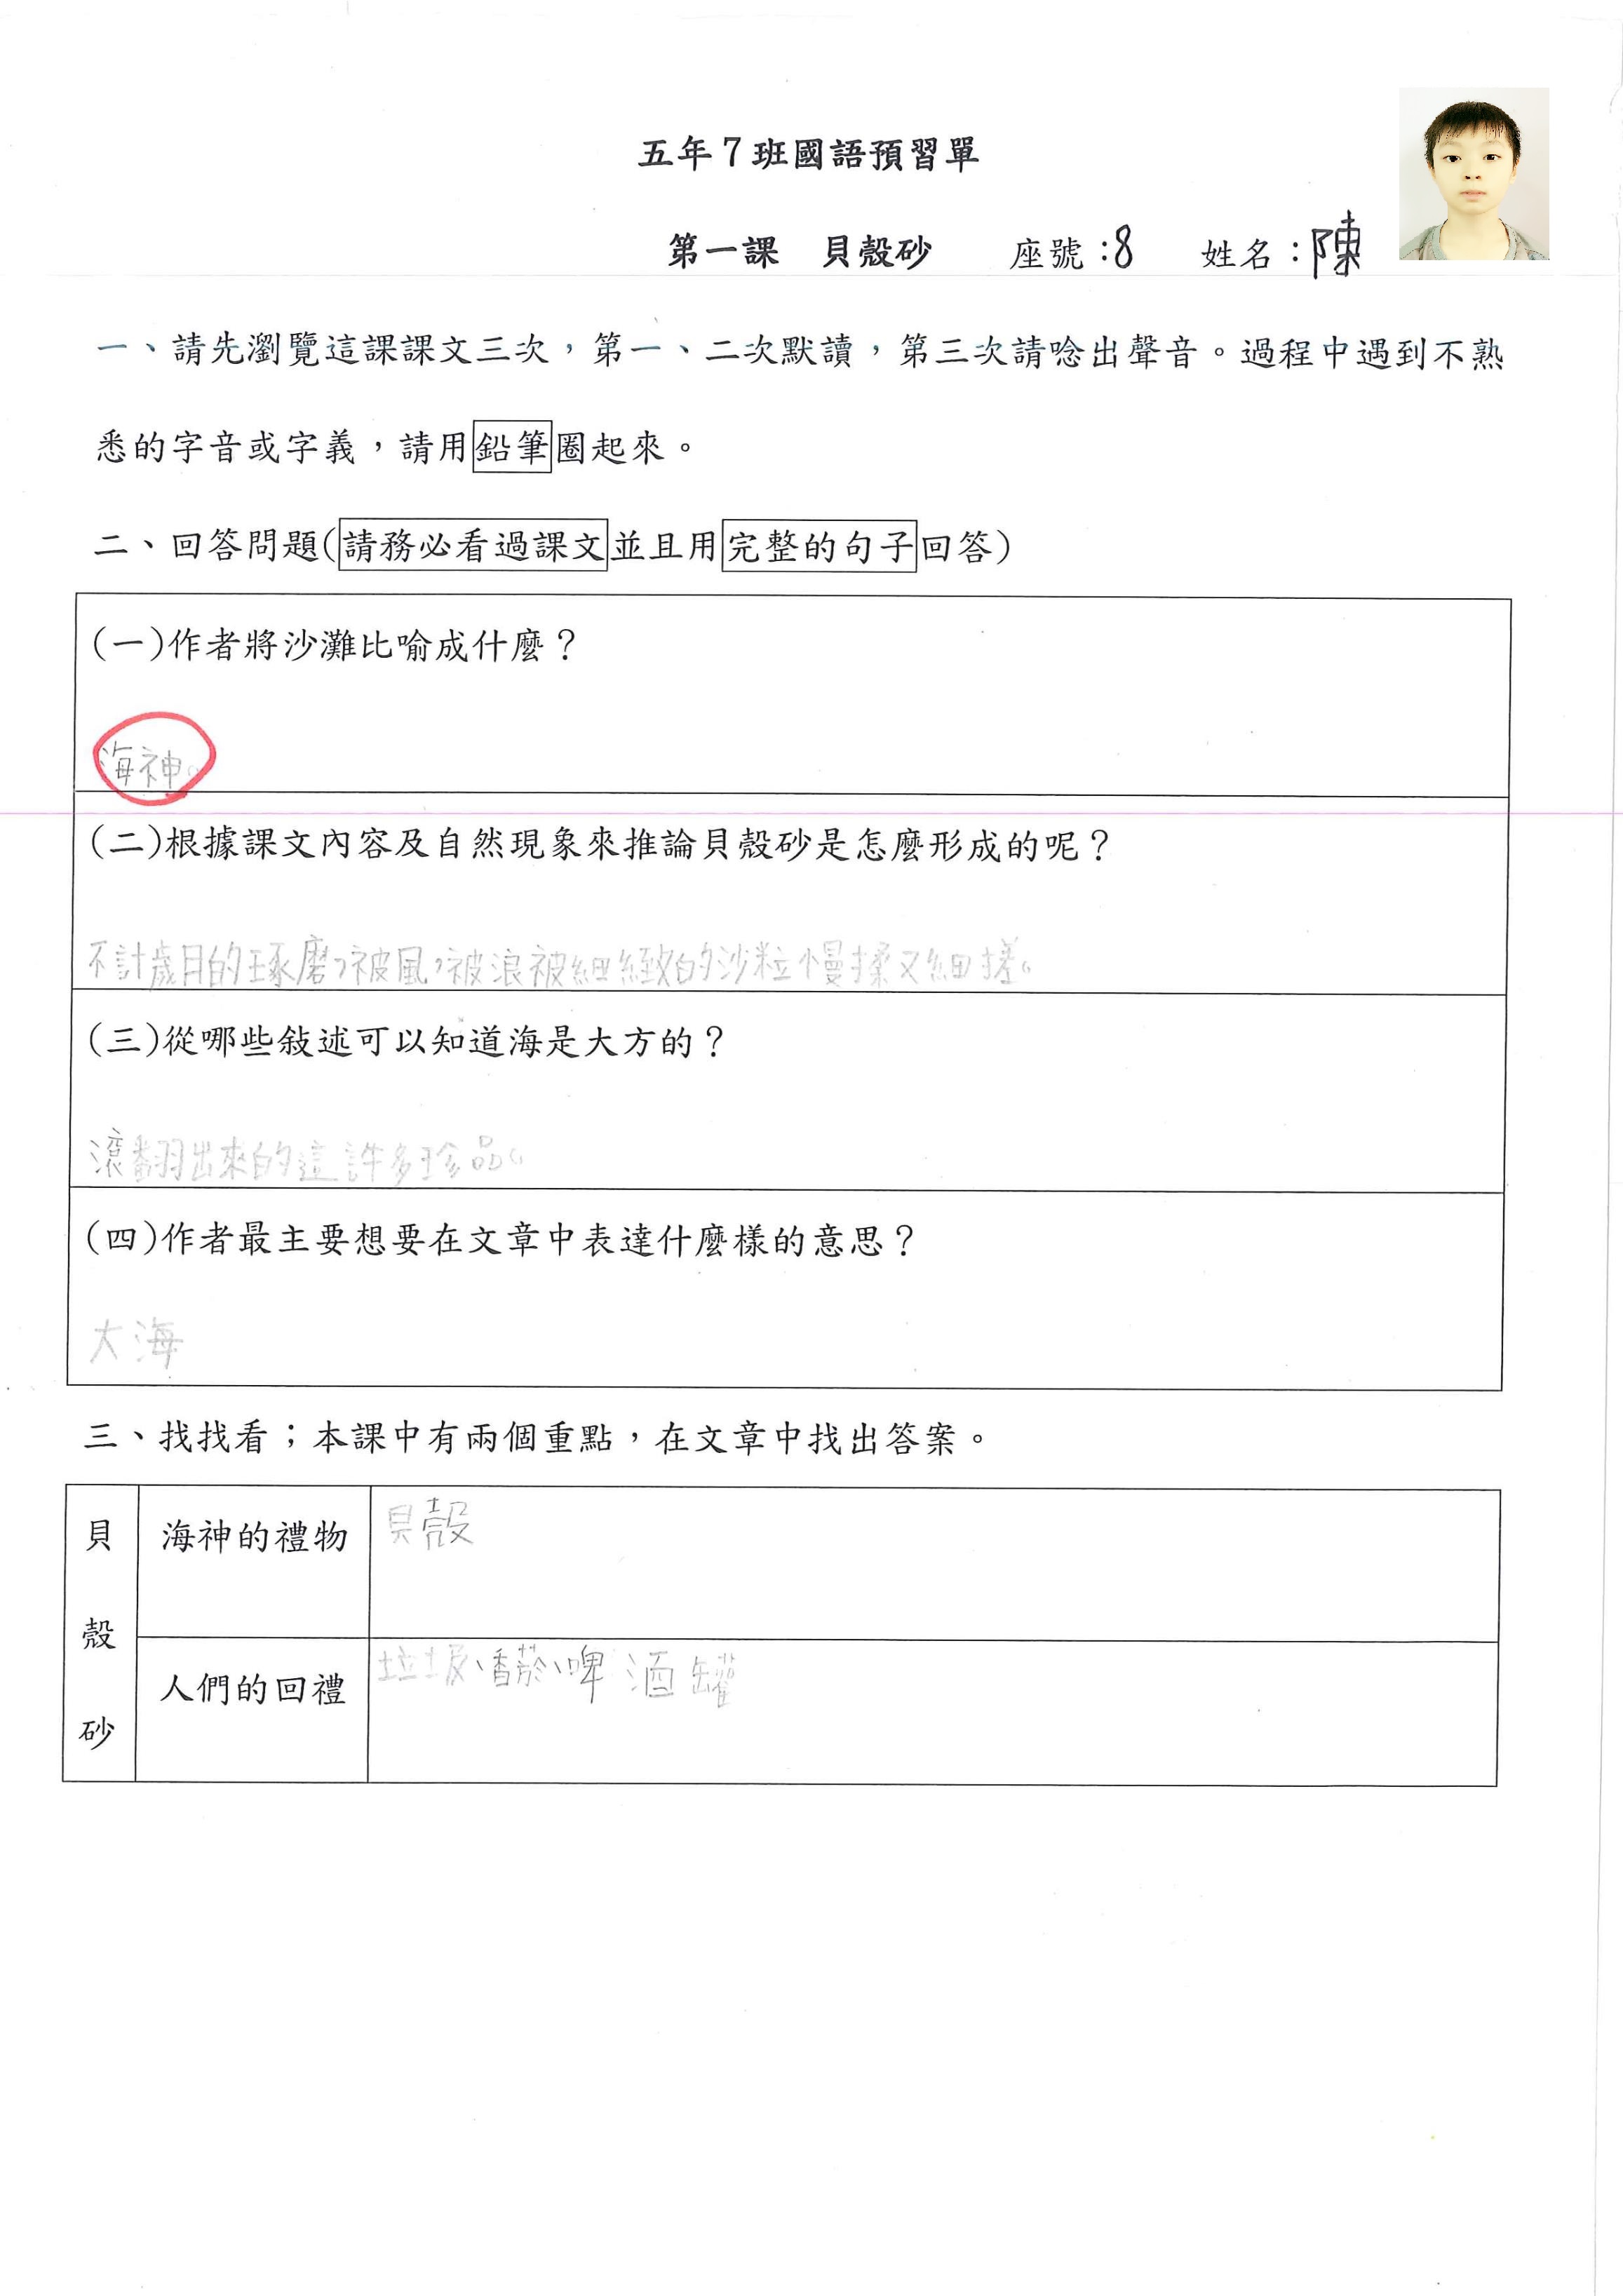 五年7班國語預習單
第一課　貝殼砂　座號：8　姓名：陳
一、請先瀏覽這課課文三次，第一、二次默讀，第三次請唸出聲音。過程中遇到不熟
悉的字音或字義，請用鉛筆圈起來。
二、回答問題(請務必看過課文並且用完整的句子回答)
(一)作者將沙灘比喻成什麼？
海神。
(二)根據課文內容及自然現象來推論貝殼砂是怎麼形成的呢？
不計歲月的琢磨，被風，被浪被細緻的沙粒慢揉又細搓。
(三)從哪些敍述可以知道海是大方的？
滾翻出來的這許多珍品。
(四)作者最主要想要在文章中表達什麼樣的意思？
大海
三、找找看；本課中有兩個重點，在文章中找出答案。
貝殼砂
海神的禮物
貝殼
人們的回禮
垃圾、香菸、啤酒罐